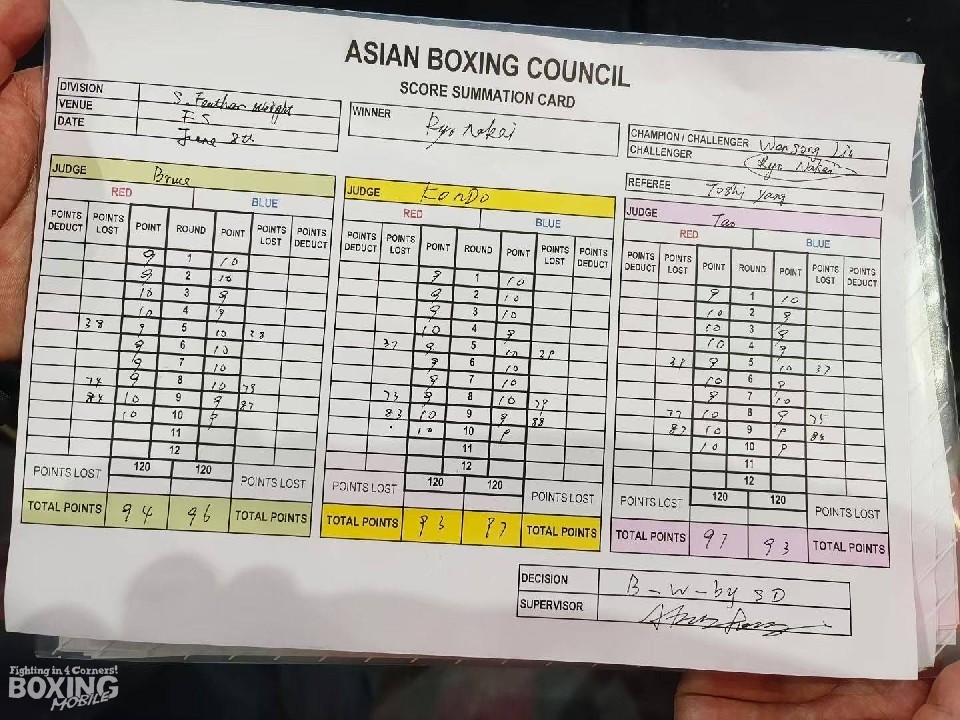 ASIAN BOXING COUNCIL
SCORE SUMMATION CARD
DIVISION S. Feather weight
VENUE F.S
DATE June 8th
WINNER Ryo Nakai
CHAMPION / CHALLENGER Wensong Lin
CHALLENGER Ryo Nakai
REFEREE Toshi Yang
JUDGE Bruce
RED BLUE
POINTS DEDUCT POINTS LOST POINT ROUND POINT POINTS LOST POINTS DEDUCT
9 1 10
9 2 10
10 3 9
10 4 9
38 9 5 10 38
9 6 10
9 7 10
74 9 8 10 78
84 10 9 9 87
10 10 9
11
12
POINTS LOST 120 120 POINTS LOST
TOTAL POINTS 94 96 TOTAL POINTS
JUDGE KonDo
RED BLUE
POINTS DEDUCT POINTS LOST POINT ROUND POINT POINTS LOST POINTS DEDUCT
9 1 10
9 2 10
9 3 10
10 4 9
37 9 5 10 39
9 6 10
9 7 10
73 9 8 10 79
83 10 9 9 88
10 10 9
11
12
POINTS LOST 120 120 POINTS LOST
TOTAL POINTS 93 97 TOTAL POINTS
JUDGE Tao
RED BLUE
POINTS DEDUCT POINTS LOST POINT ROUND POINT POINTS LOST POINTS DEDUCT
9 1 10
10 2 9
10 3 9
10 4 9
38 9 5 10 37
10 6 9
9 7 10
77 10 8 9 75
87 10 9 9 84
10 10 9
11
12
POINTS LOST 120 120 POINTS LOST
TOTAL POINTS 97 93 TOTAL POINTS
DECISION B-W-by SD
SUPERVISOR
Fighting in 4 Corners!
BOXING
MOBILE